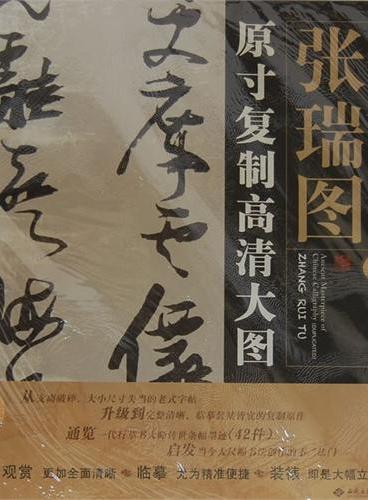 张瑞图
Ancient Masterpiece of
Chinese Calligraphy
ZHANG RUI TU
原寸复制高清大图
从支离破碎、大小尺寸失当的老式字帖
升级到完整清晰、临摹装裱皆宜的复制原作
通览一代行草书大师传世条幅墨迹(42件)
启发当今大尺幅书法创作的不二法门
观赏 更如全面清晰 临摹 尤为精准便捷 装裱 即是大幅立